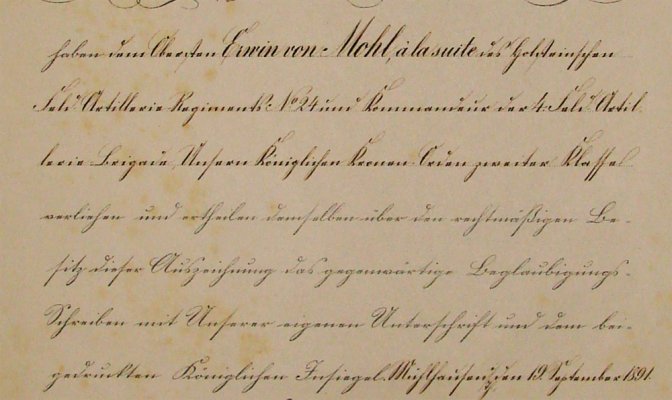 haben dem Obersten Erwin von Mohl, à la suite des Holsteinschen
Feld-Artillerie Regiments No 24 und Kommandeur der 4. Feld-Artil-
lerie-Brigade, Unsern Königlichen Kronen-Orden zweiter Klasse
verliehen und ertheilen demselben über den rechtmäßigen Be-
sitz dieser Auszeichnung das gegenwärtige Beglaubigungs-
Schreiben mit Unserer eigenen Unterschrift und dem bei-
gedruckten Königlichen Insiegel. Mühlhausen, den 19. September 1891.